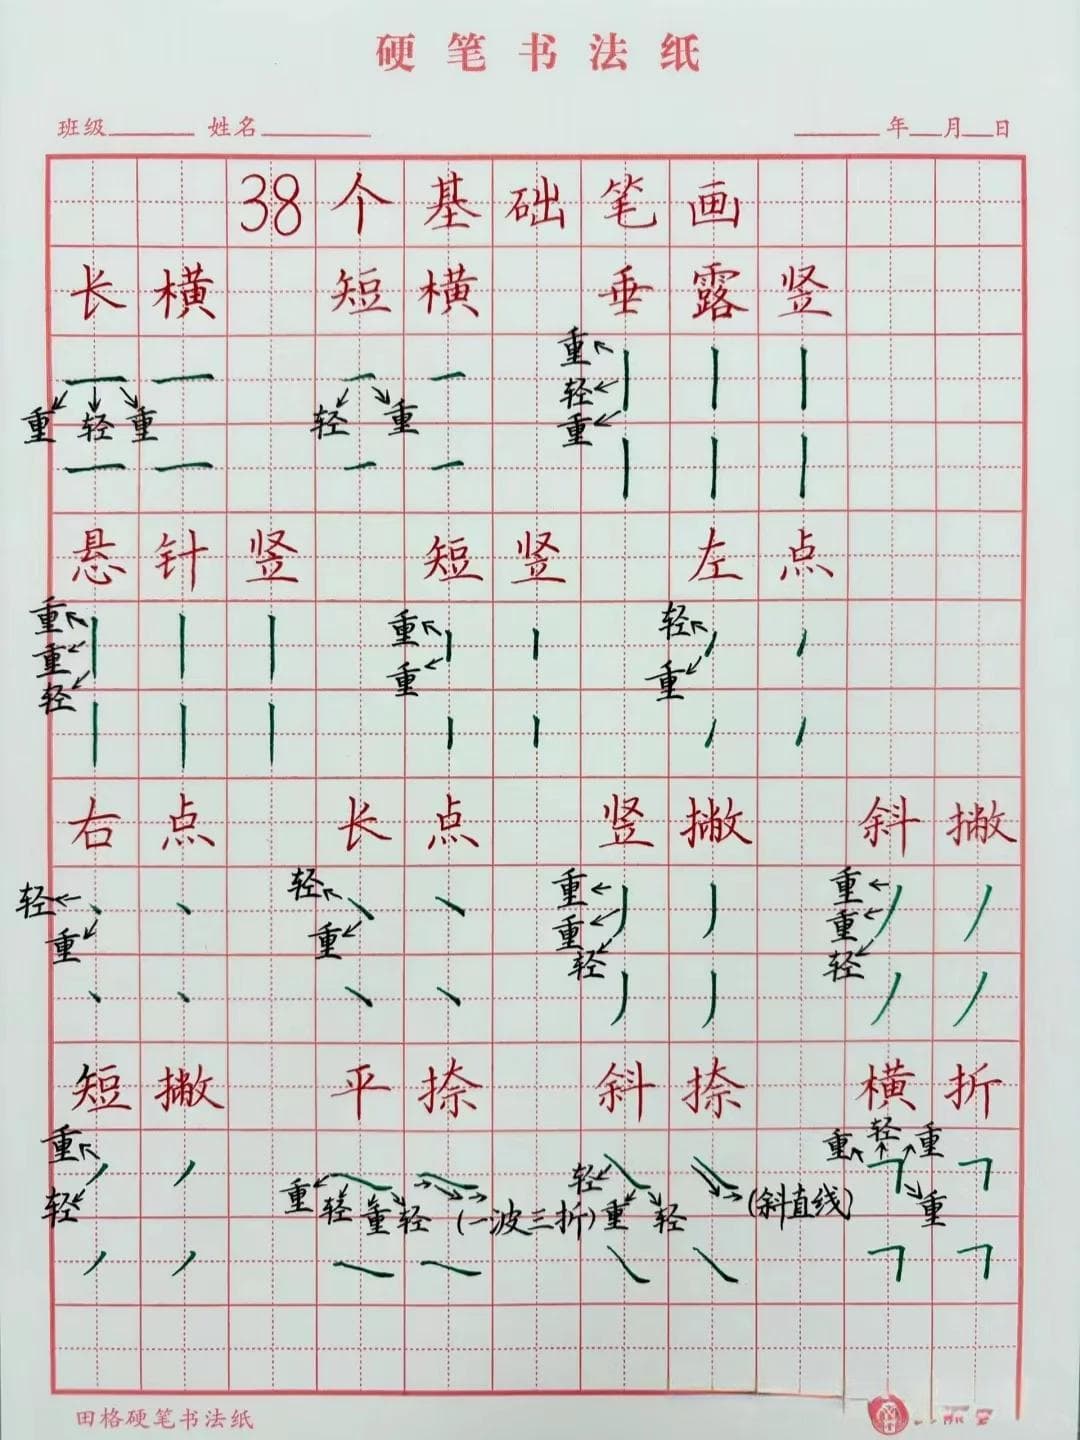 硬笔书法纸
班级 姓名 年 月 日
38个基础笔画
长横 短横 垂露竖
重 轻 重 轻 重 重 轻 重
悬针竖 短竖 左点
重 重 轻 重 重 轻 重
右点 长点 竖撇 斜撇
轻 重 轻 重 重 重 轻 重 重 轻
短撇 平捺 斜捺 横折
重 轻 重 轻 重 轻 (一波三折) 轻 重 轻 (斜直线) 重 轻 重 重
田格硬笔书法纸